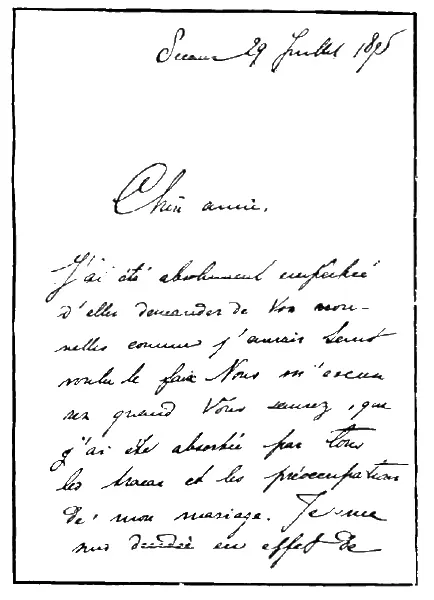 Sceaux 29 Juillet 1895
Chère amie,
J'ai été absolument empêchée
d'aller demander de vos nou-
velles comme j'aurais tant
voulu le faire Vous m'excuse
rez quand vous saurez, que
j'ai été absorbée par tous
les tracas et les préoccupations
de mon mariage. Je me
suis décidée en effet de